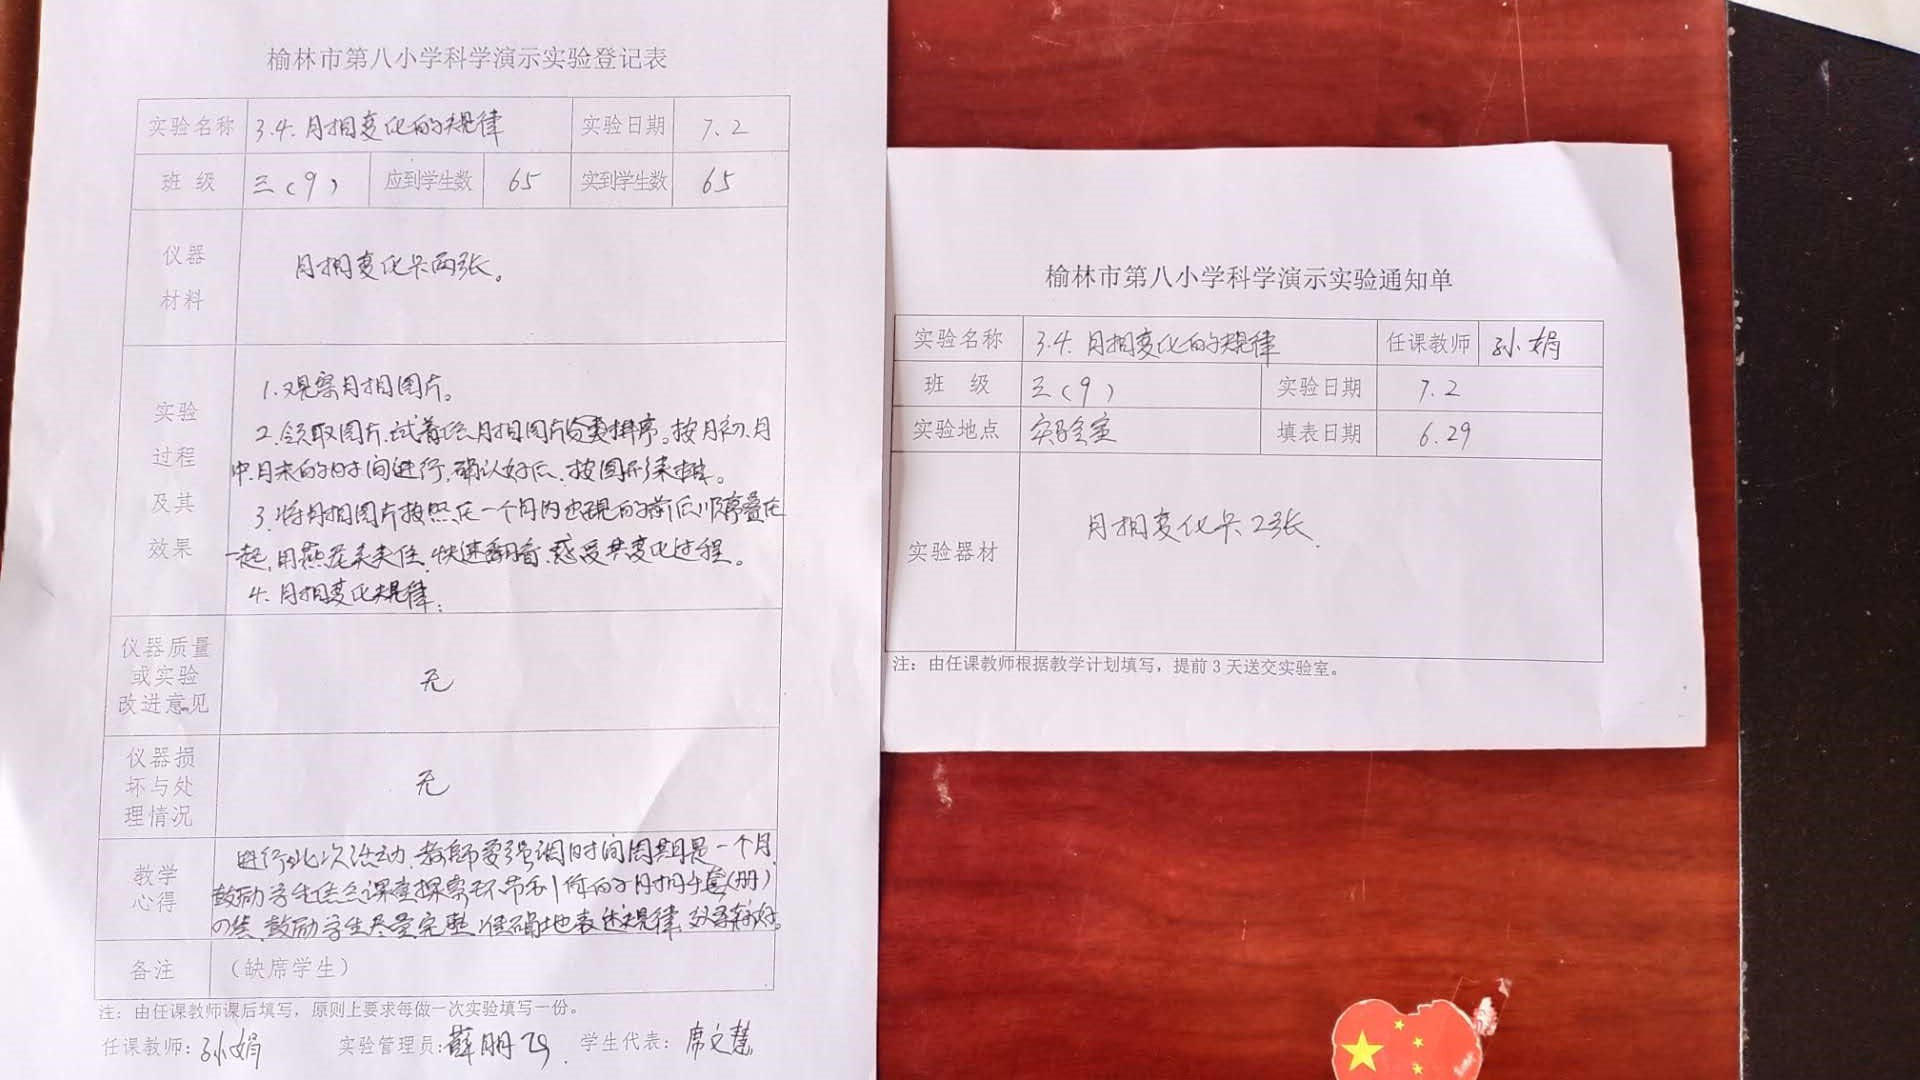 榆林市第八小学科学演示实验登记表
实验名称 3.4.月相变化的规律 实验日期 7.2
班 级 三(9) 应到学生数 65 实到学生数 65
仪器
材料
月相变化卡两张。
实验
过程
及其
效果
1.观察月相图片。
2.领取图片,试着给月相图片分类排序。按月初、月
中、月末的时间进行,确认好后,按图形来排。
3.将月相图片按照在一个月内出现的前后顺序叠在
一起,用燕尾夹夹住,快速翻看,感受其变化过程。
4.月相变化规律:
仪器质量
或实验
改进意见
无
仪器损
坏与处
理情况
无
教学
心得
进行此次活动,教师要强调时间周期是一个月,
鼓励学生结合课堂探索环节制作的月相手套(册)
总结,鼓励学生尽量完整、准确地表述规律,效果较好。
备注 (缺席学生)
注:由任课教师课后填写,原则上要求每做一次实验填写一份。
任课教师:孙娟 实验管理员:薛明 学生代表:席文慧
榆林市第八小学科学演示实验通知单
实验名称 3.4.月相变化的规律 任课教师 孙娟
班 级 三(9) 实验日期 7.2
实验地点 实验室 填表日期 6.29
实验器材 月相变化卡2张.
注:由任课教师根据教学计划填写,提前3天送交实验室。